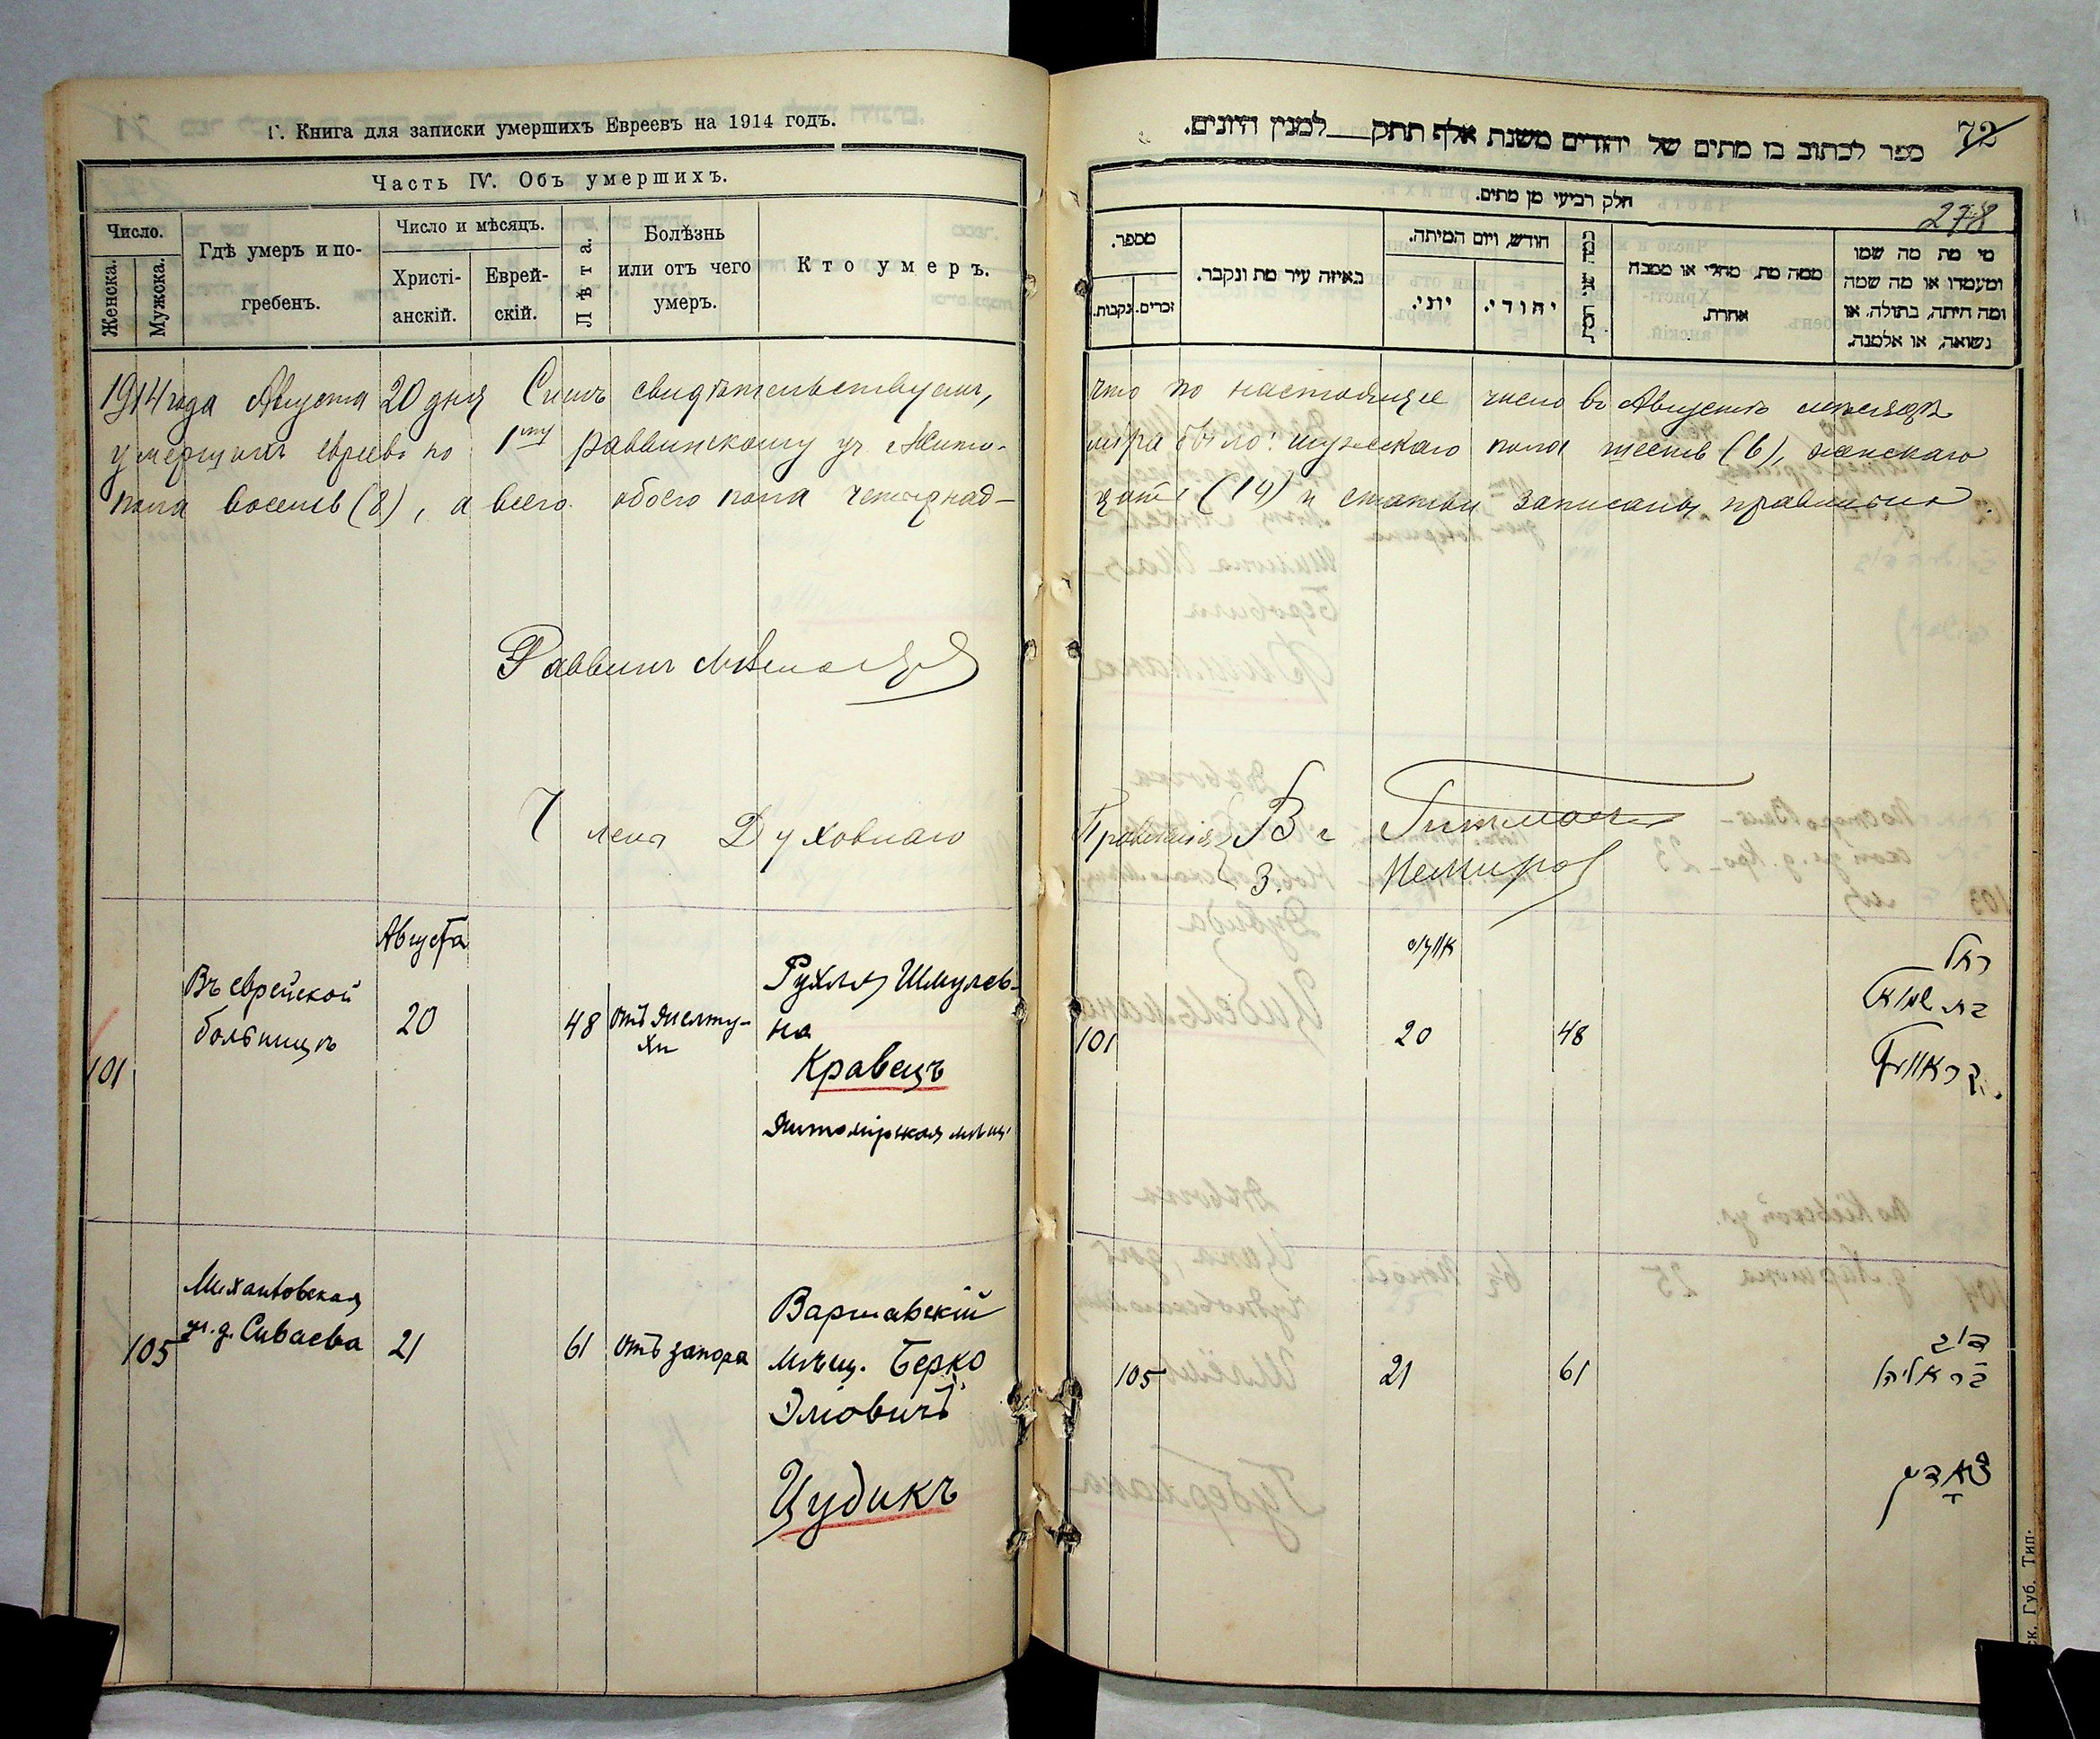 Г. Книга для записки умершихъ Евреевъ на 1914 годъ.
Часть IV. Объ умершихъ.
Число.
Женска.
Мужска.
Гдѣ умеръ и по-
гребенъ.
Число и мѣсяцъ.
Христі-
анскій.
Еврей-
скій.
Лѣта.
Болѣзнь
или отъ чего
умеръ.
Кто умеръ.
1914 года Августа 20 дня Симъ свидѣтельствуемъ,
умершихъ евреевъ по 1му раввинскому уч. Жито-
пола восемь (8), а всего обоего пола четырнад-
Раввинъ
Члены Духовнаго
Августа
101
Въ еврейской
больницѣ
20
48
отъ желту-
хи
Рухля Шмулев-
на
Кравецъ
Житомірская мѣщ.
105
Михайловская
ул. д. Сиваева
21
61
отъ запора
Варшавскій
мѣщ. Берко
Эліовичъ
Цудикъ
72
ספר לכתוב בו מתים של יהודים משנת אלף תתק למנין היונים.
278
חלק רביעי מן מתים.
מספר.
נקבות.
זכרים.
באיזה עיר מת ונקבר.
חודש, ויום המיתה.
יוני.
יהודי.
ממה מת, מחלי או ממכה
אחרת.
מי מת מה שמו
ומעמדו או מה שמה
ומה היתה, בתולה, או
נשואה, או אלמנה.
что по настоящее число въ Августѣ мѣсяцѣ
міра было: мужскаго пола шесть (6), женскаго
цать (14) и статьи записаны правильно.
Правленія В. Гитман
З. Немиров
101
20
48
רחל
בת שמואל
קראוועץ
105
21
61
דוב
בר אליהו
צאדיק
ск. Губ. Тип.